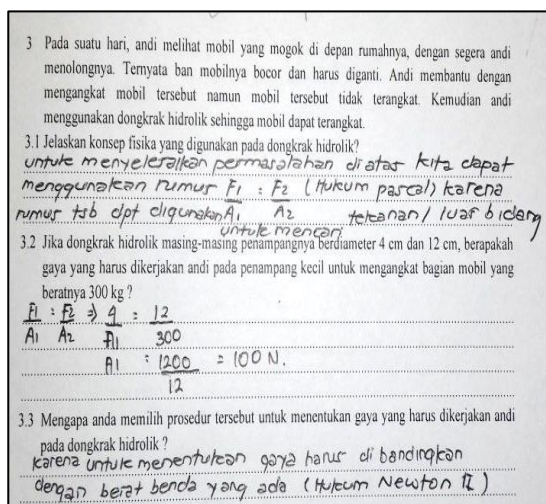 3 Pada suatu hari, andi melihat mobil yang mogok di depan rumahnya, dengan segera andi
menolongnya. Ternyata ban mobilnya bocor dan harus diganti. Andi membantu dengan
mengangkat mobil tersebut namun mobil tersebut tidak terangkat. Kemudian andi
menggunakan dongkrak hidrolik sehingga mobil dapat terangkat.
3.1 Jelaskan konsep fisika yang digunakan pada dongkrak hidrolik?
untuk menyelesaikan permasalahan di atas kita dapat
menggunakan rumus F1/A1 = F2/A2 (Hukum pascal) karena
rumus tsb dpt digunakan untuk mencari tekanan / luas bidang
3.2 Jika dongkrak hidrolik masing-masing penampangnya berdiameter 4 cm dan 12 cm, berapakah
gaya yang harus dikerjakan andi pada penampang kecil untuk mengangkat bagian mobil yang
beratnya 300 kg ?
F1/A1 = F2/A2 ⇒ 4/A1 = 12/300
A1 = 1200/12 = 100 N.
3.3 Mengapa anda memilih prosedur tersebut untuk menentukan gaya yang harus dikerjakan andi
pada dongkrak hidrolik ?
karena untuk menentukan gaya harus di bandingkan
dengan berat benda yang ada (Hukum Newton II)